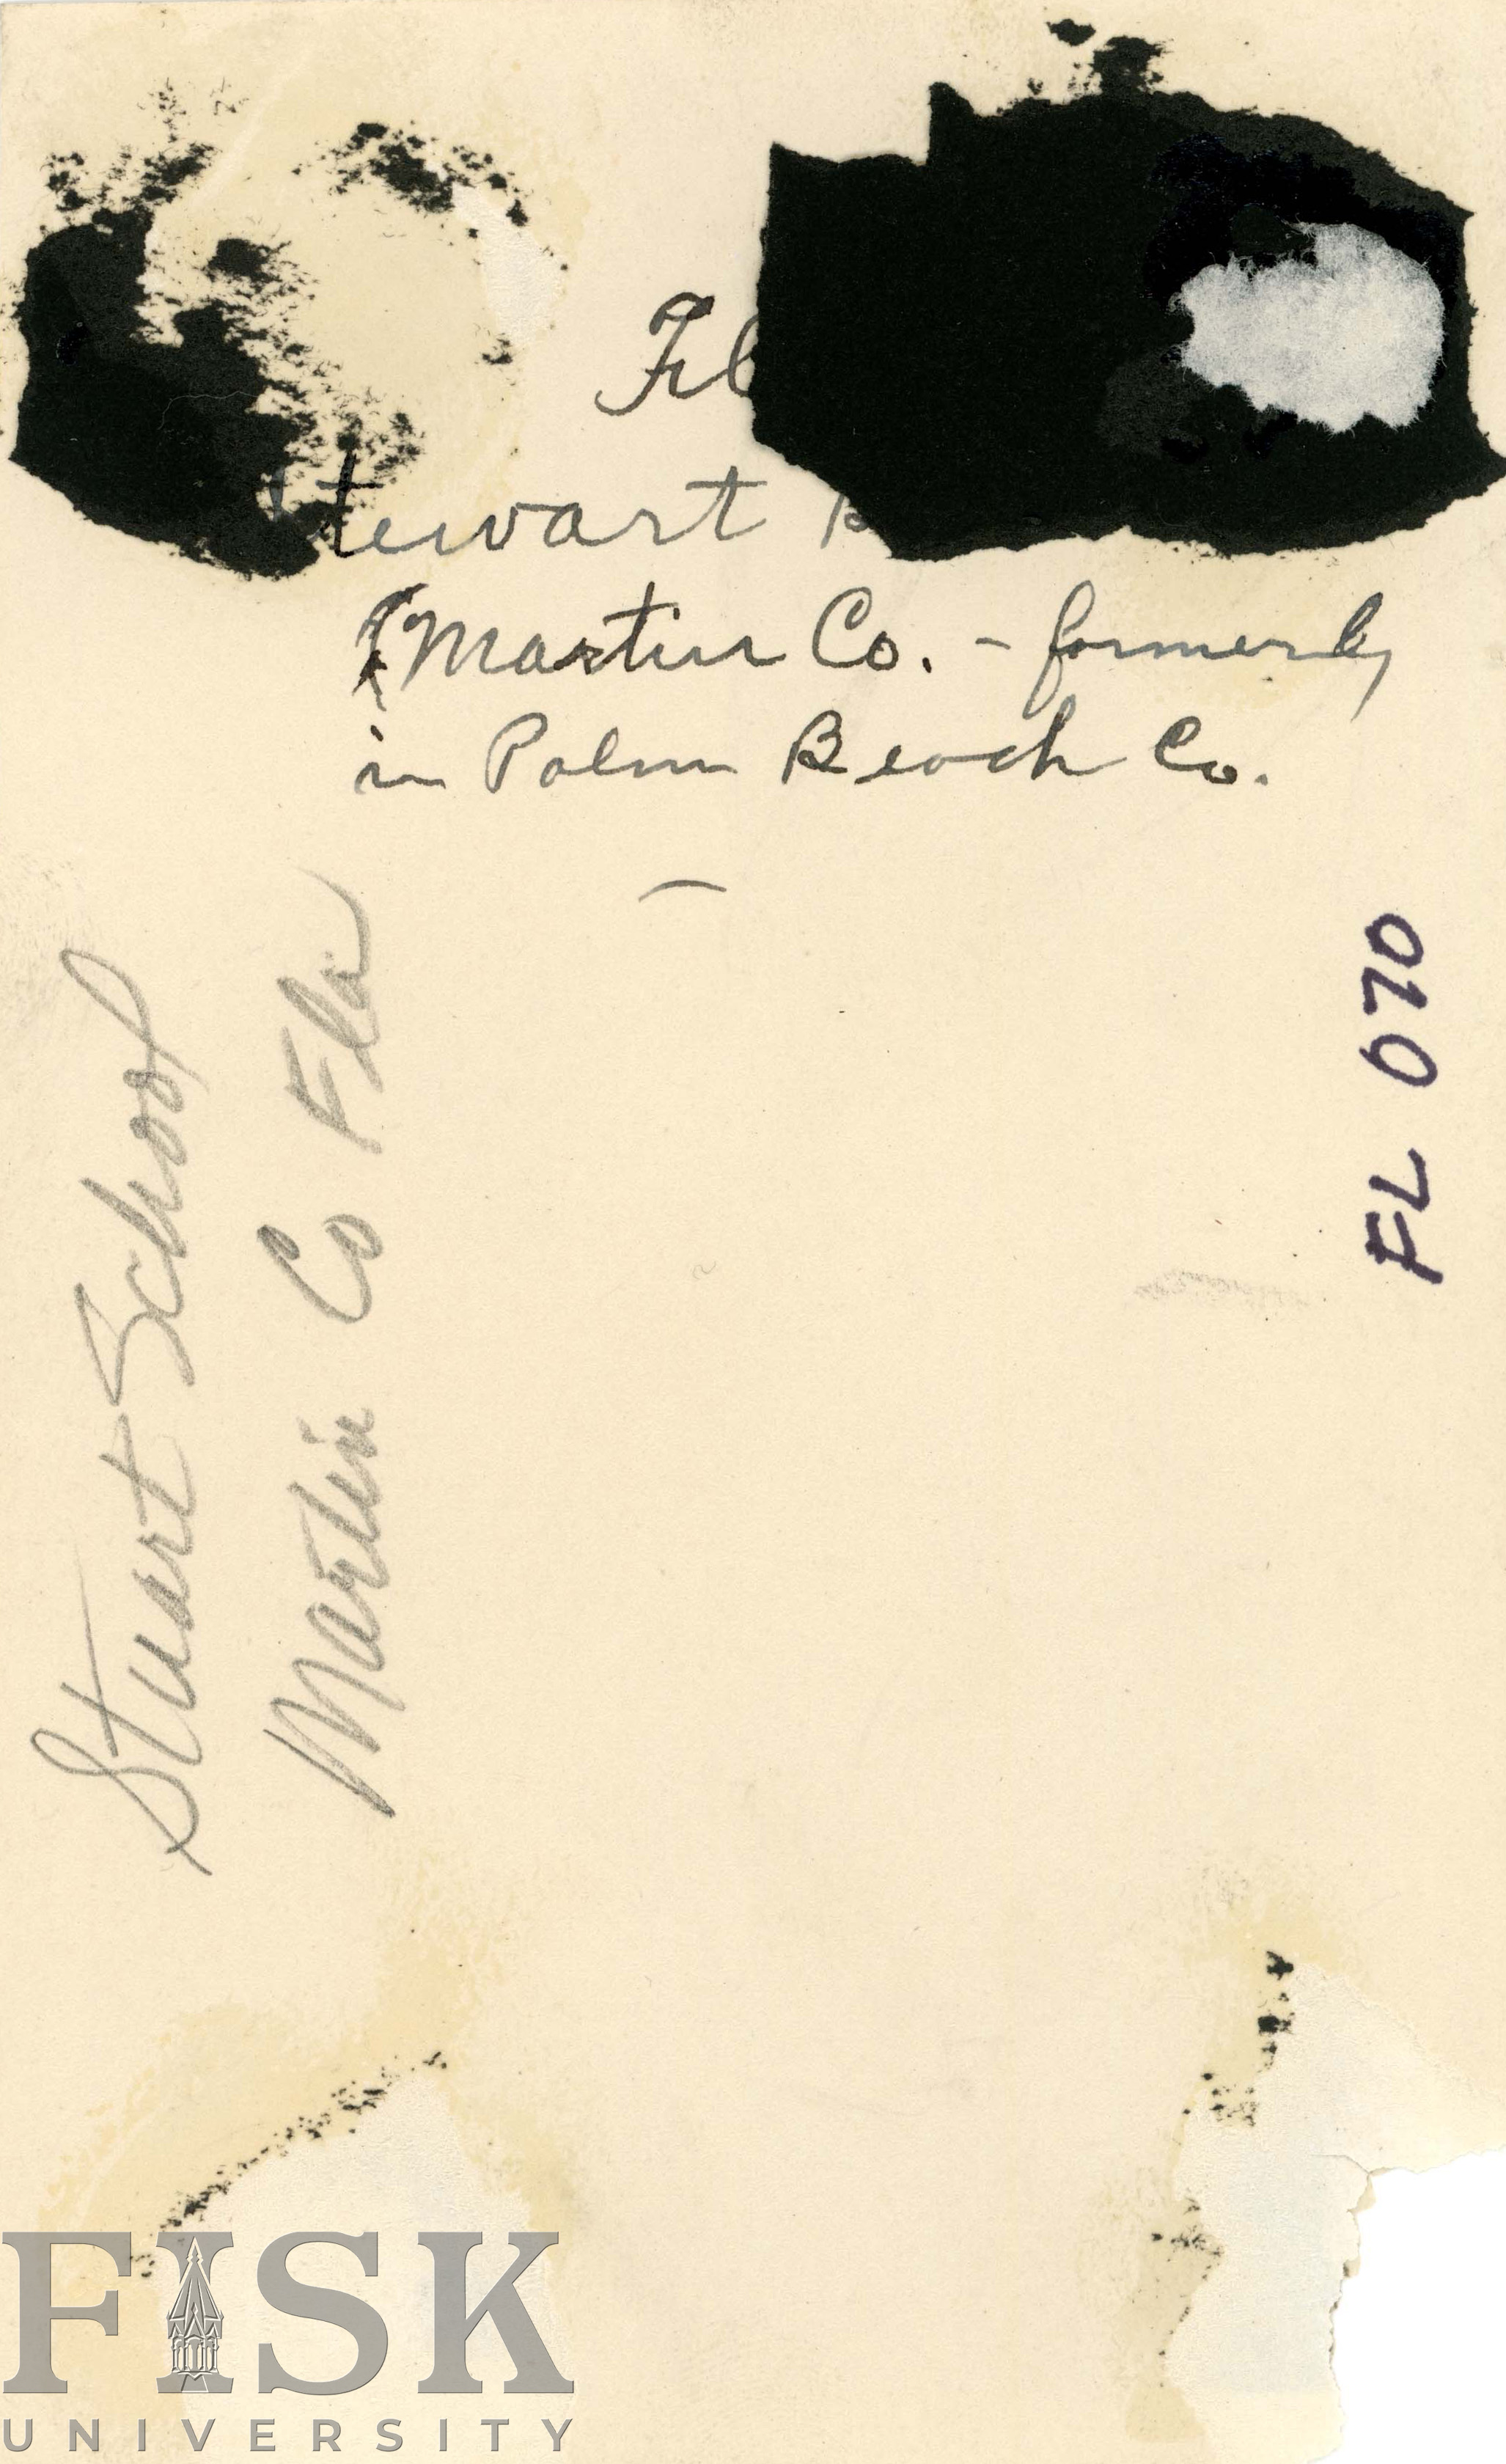 Fl
Stewart B
(Martin Co. - formerly
in Palm Beach Co.
Stuart School
Martin Co Fla
FL 070
FISK
UNIVERSITY